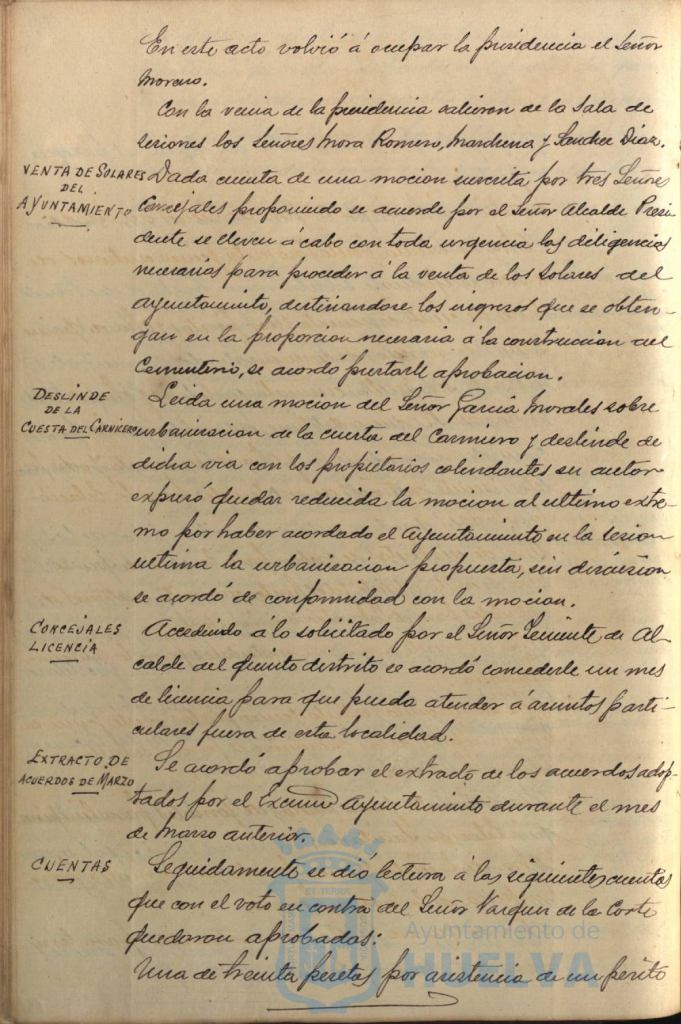 En este acto volvió á ocupar la presidencia el Señor
Moreno.
Con la venia de la presidencia salieron de la Sala de
sesiones los Señores Mora Romero, Marchena y Sanchez Diaz.
VENTA DE SOLARES
DEL
AYUNTAMIENTO
Dada cuenta de una mocion suscrita por tres Señores
Concejales proponiendo se acuerde por el Señor Alcalde Presi
dente se lleven á cabo con toda urgencia las diligencias
necesarias para proceder á la venta de los Solares del
Ayuntamiento, destinandose los ingresos que se obten-
gan en la proporcion necesaria á la construccion del
Cementerio, se acordó prestarle aprobacion.
DESLINDE
DE LA
CUESTA DEL CARNICERO
Leida una mocion del Señor Garcia Morales sobre
urbanizacion de la cuesta del Carnicero y deslinde de
dicha via con los propietarios colindantes su autor
expuso quedar reducida la mocion al ultimo extre-
mo por haber acordado el Ayuntamiento en la sesion
ultima la urbanizacion propuesta, sin discusion
se acordó de conformidad con la mocion.
CONCEJALES
LICENCIA
Accediendo á lo solicitado por el Señor Teniente de Al-
calde del quinto distrito se acordó concederle un mes
de licencia para que pueda atender á asuntos parti-
culares fuera de esta localidad.
EXTRACTO DE
ACUERDOS DE MARZO
Se acordó aprobar el extracto de los acuerdos adop-
tados por el Excmo Ayuntamiento durante el mes
de Marzo anterior.
CUENTAS
Seguidamente se dió lectura á las siguientes cuentas
que con el voto en contra del Señor Vazquez de la Corte
quedaron aprobadas:
Una de treinta pesetas por asistencia de un perito
Ayuntamiento de
HUELVA